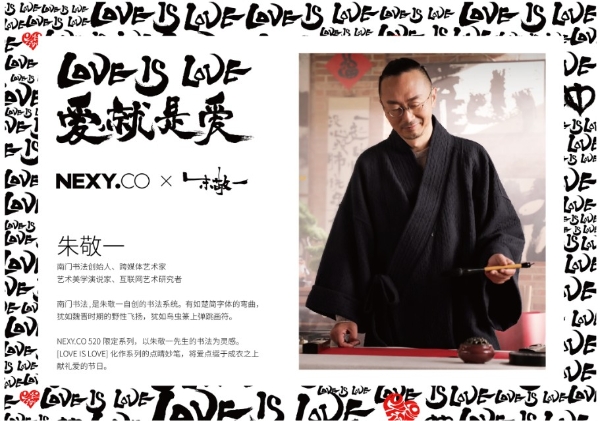 LOVE IS LOVE
爱就是爱
NEXY.CO × 朱敬一
朱敬一
南门书法创始人、跨媒体艺术家
艺术美学演说家、互联网艺术研究者
南门书法,是朱敬一自创的书法系统。有如楚简字体的弯曲,
犹如魏晋时期的野性飞扬,犹如鸟虫篆上弹跳画符。
NEXY.CO 520 限定系列,以朱敬一先生的书法为灵感。
[LOVE IS LOVE] 化作系列的点睛妙笔,将爱点缀于成衣之上
献礼爱的节日。